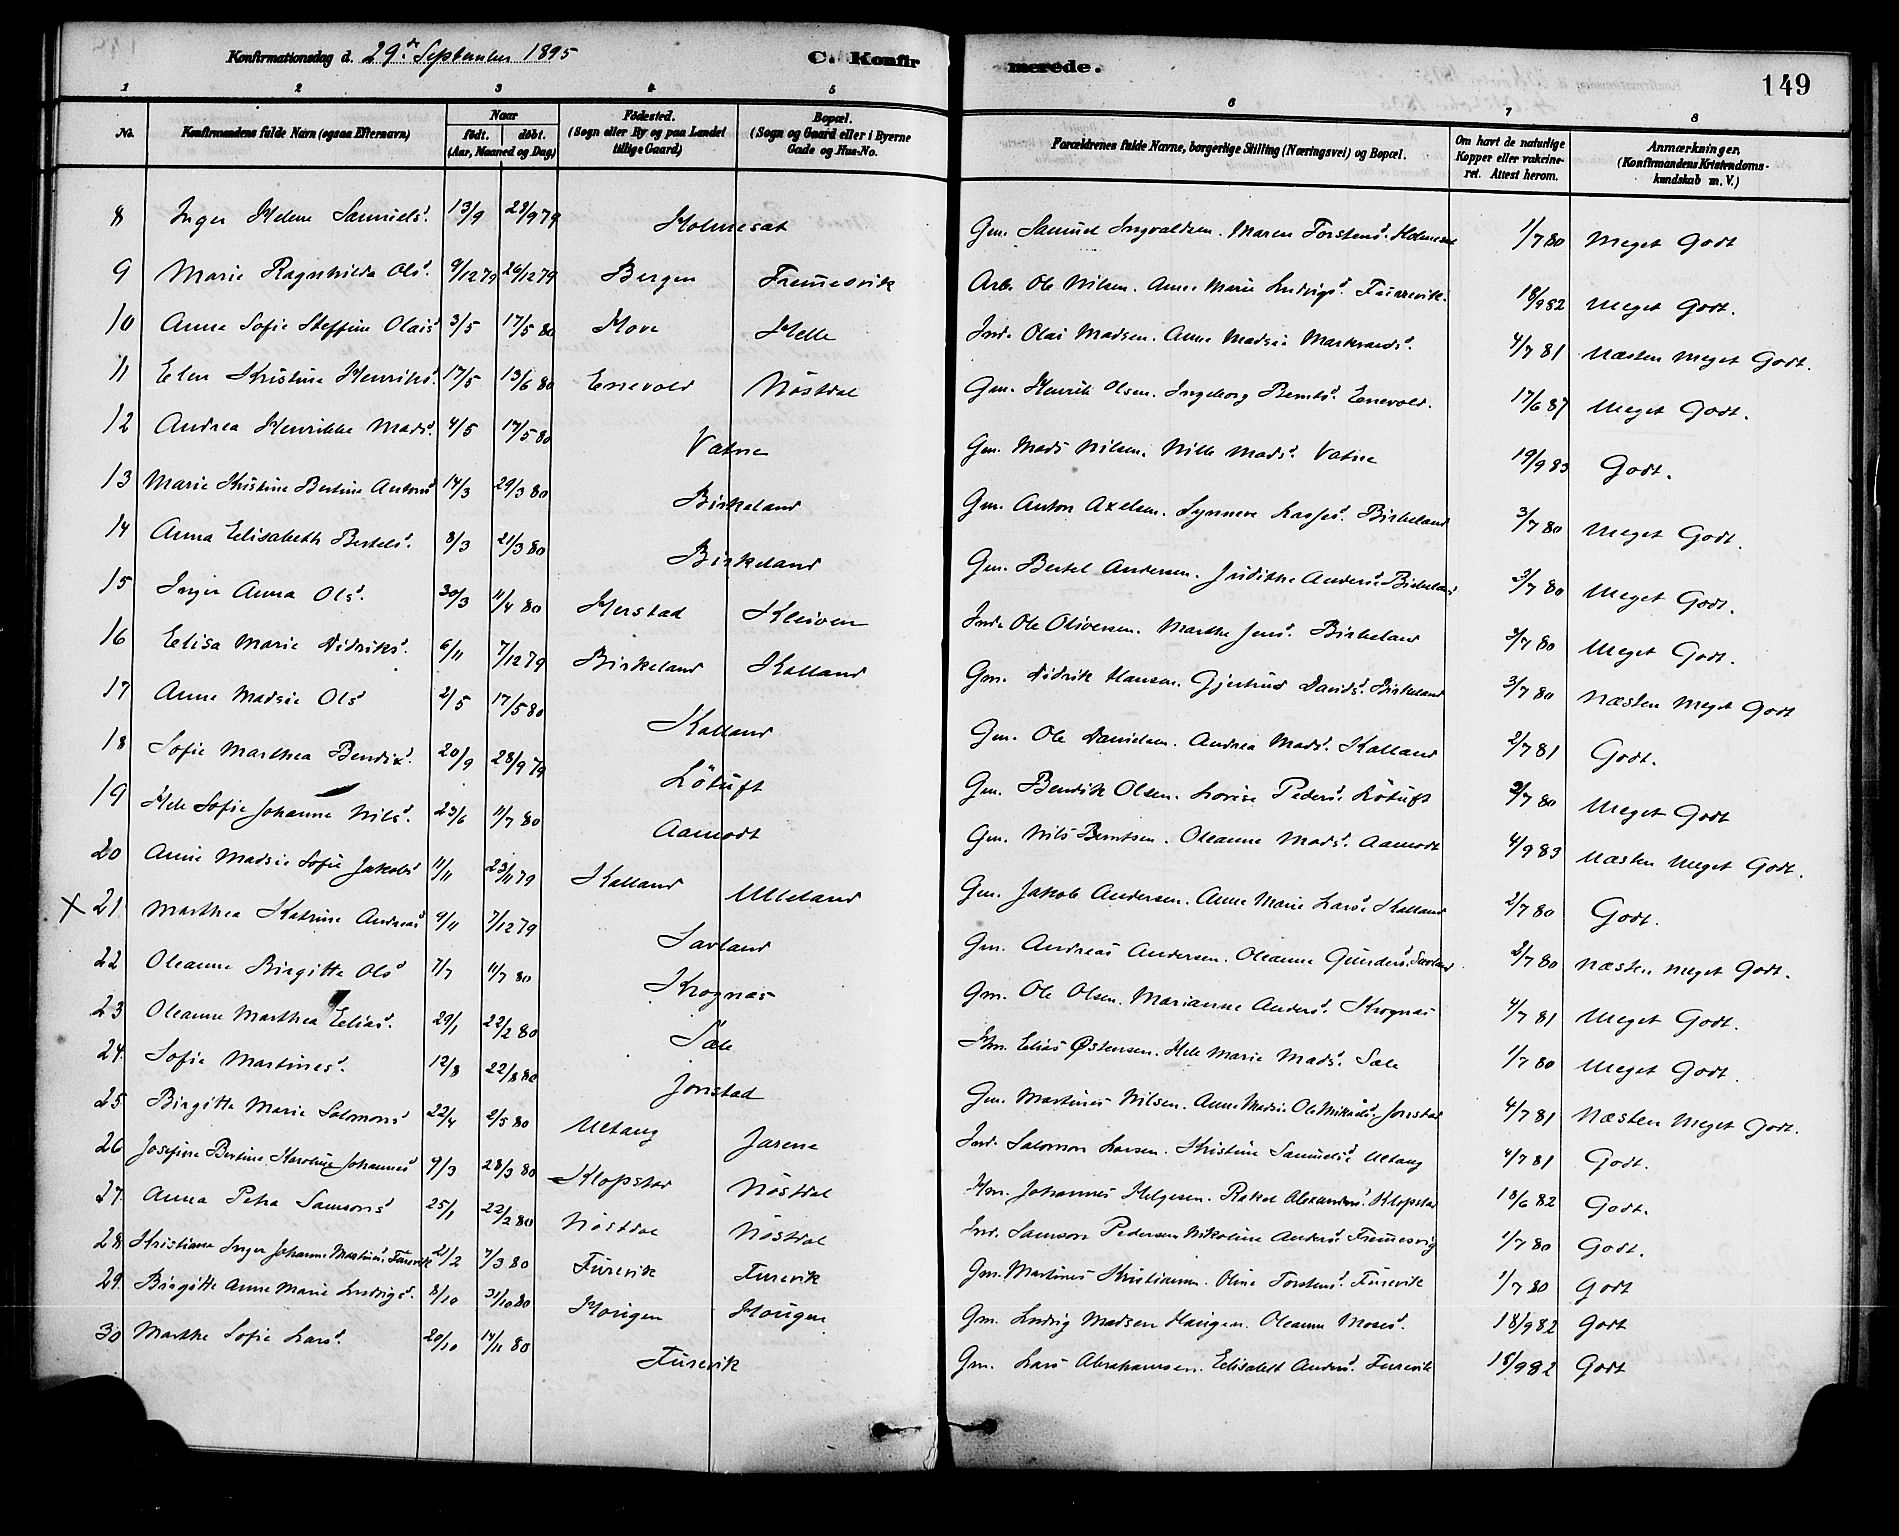 Konfirmationsdag d. 29de September 1895 C. Konfirmerede. 149
1 2 3 4 5 6 7 8
No. Konfirmandens fulde Navn (ogsaa Efternavn) Naar født. døbt. (Aar, Maaned og Dag) Fødested. (Sogn eller By og paa Landet tillige Gaard) Bopæl. (Sogn og Gaard eller i Byerne Gade og Hus-No. Forældrenes fulde Navne, borgerlige Stilling (Næringsvei) og Bopæl. Om havt de naturlige Kopper eller vakcineret. Attest herom. Anmærkninger, (Konfirmandens Kristendomskundskab m. V.)
8 Inger Helene Samuelsd. 13/9 28/9 79 Holmesat Gm. Samuel Ingvaldsen. Maren Torstensd. Holmesat 1/7 80 Meget Godt
9 Marie Ragnhilda Olsd. 9/12 79 26/12 79 Bergen Fremesvik Arb. Ole Nilsen. Anne Marie Ludvigsd. Furrevik. 18/9 82 Meget Godt.
10 Anna Sofie Steffine Olaisd. 3/5 17/5 80 Hove Helle Ind. Olai Madsen. Anne Madsie Markvardsd. 4/7 81 Næsten Meget Godt.
11 Elen Kristine Henriksd. 17/5 13/6 80 Enevold Nöstdal Gm. Henrik Olsen. Ingeborg Berntsd. Enevold. 17/6 87 Meget Godt.
12 Andrea Henrikke Madsd. 4/5 17/5 80 Vatne Gm. Mads Nilsen. Nille Madsd. Vatne 19/9 83 Godt.
13 Marie Kristine Bertine Antonsd. 14/3 29/3 80 Birkeland Gm. Anton Axelsen. Synneve Lassesd. Birkeland 3/7 80 Meget Godt.
14 Anna Elisabeth Bertelsd. 8/3 21/3 80 Birkeland Gm. Bertel Andersen. Judithe Andersd. Birkeland 3/7 80 Meget Godt.
15 Inger Anna Olsd. 30/3 11/4 80 Herstad Kleiven Ind. Ole Oliversen. Marthe Jensd. Birkeland 3/7 80 Meget Godt.
16 Elisa Marie Didriksd. 6/11 7/12 79 Birkeland Kalland Gm. Didrik Hansen. Gjertrud Davidsd. Birkeland 3/7 80 Næsten Meget Godt
17 Anne Madsie Olsd 2/5 17/5 80 Kalland Gm. Ole Danielsen. Andrea Madsd. Kalland 2/7 81 Godt.
18 Sofie Marthea Bendixd. 20/9 28/9 79 Lötuft Gm. Bendik Olsen. Lovise Pedersd. Lötuft 2/7 80 Meget Godt
19 Hele Sofie Johanne Nilsd. 23/6 11/7 80 Aamodt Gm. Nils Berntsen. Oleanne Madsd. Aamodt 4/9 83 Næsten Meget Godt.
20 Anne Madsie Sofie Jakobsd 11/11 23/11 79 Kalland Ulleland Gm. Jakob Andersen. Anne Marie Larsd. Kalland 2/7 80 Godt.
X 21 Marthea Katrine Andreasd 9/11 7/12 79 Savland Gm. Andreas Andersen. Oleanne Gundersd. Savland 2/7 80 Næsten meget Godt.
22 Oleanne Birgitte Olsd 7/7 11/7 80 Krognæs Gm. Ole Olsen. Marianne Andersd. Krognæs 4/7 81 Meget Godt.
23 Oleanne Marthea Eliasd. 29/1 22/2 80 Sæle Hm. Elias Østensen. Hele Marie Madsd. Sæle 1/7 80 Meget Godt.
24 Sofie Martinesd. 12/8 22/8 80 Jonstad Gm. Martines Nilsen. Anne Madsie Ole Mikalsd. Jonstad 4/7 81 Næsten Meget Godt.
25 Birgitte Marie Salomonsd 22/4 2/5 80 Ultang Jarene Ind. Salomon Larsen. Kristine Samuelsd. Ultang 4/7 81 Godt.
26 Josefine Bertine Karoline Johannesd 9/3 28/3 80 Klopstad Nöstdal Hm. Johannes Helgesen. Rakel Alexandersd. Klopstad 18/6 82 Godt.
27. Anna Petra Samsonsd 25/1 22/2 80 Nöstdal Nöstdal Ind. Samson Pedersen Nikoline Andersd. Fremesvig 1/7 80 Godt.
28 Kristiane Inger Johanne Martinesd. Furevik 21/2 7/3 80 Furevik Furevik Gm. Martines Kristiansen. Oline Torstensd. Furevik 1/7 80 Godt
29. Birgitte Anne Marie Ludvigsd. 8/10 31/10 80 Hougen Hougen Gm. Ludvig Madsen Haugen. Oleanne Mosesd. 18/9 82 Godt
30 Marthe Sofie Larsd. 20/10 14/11 80 Furevik Gm. Lars Abrahamsen. Elisabeth Andersd. Furrevik 18/9 82 Godt